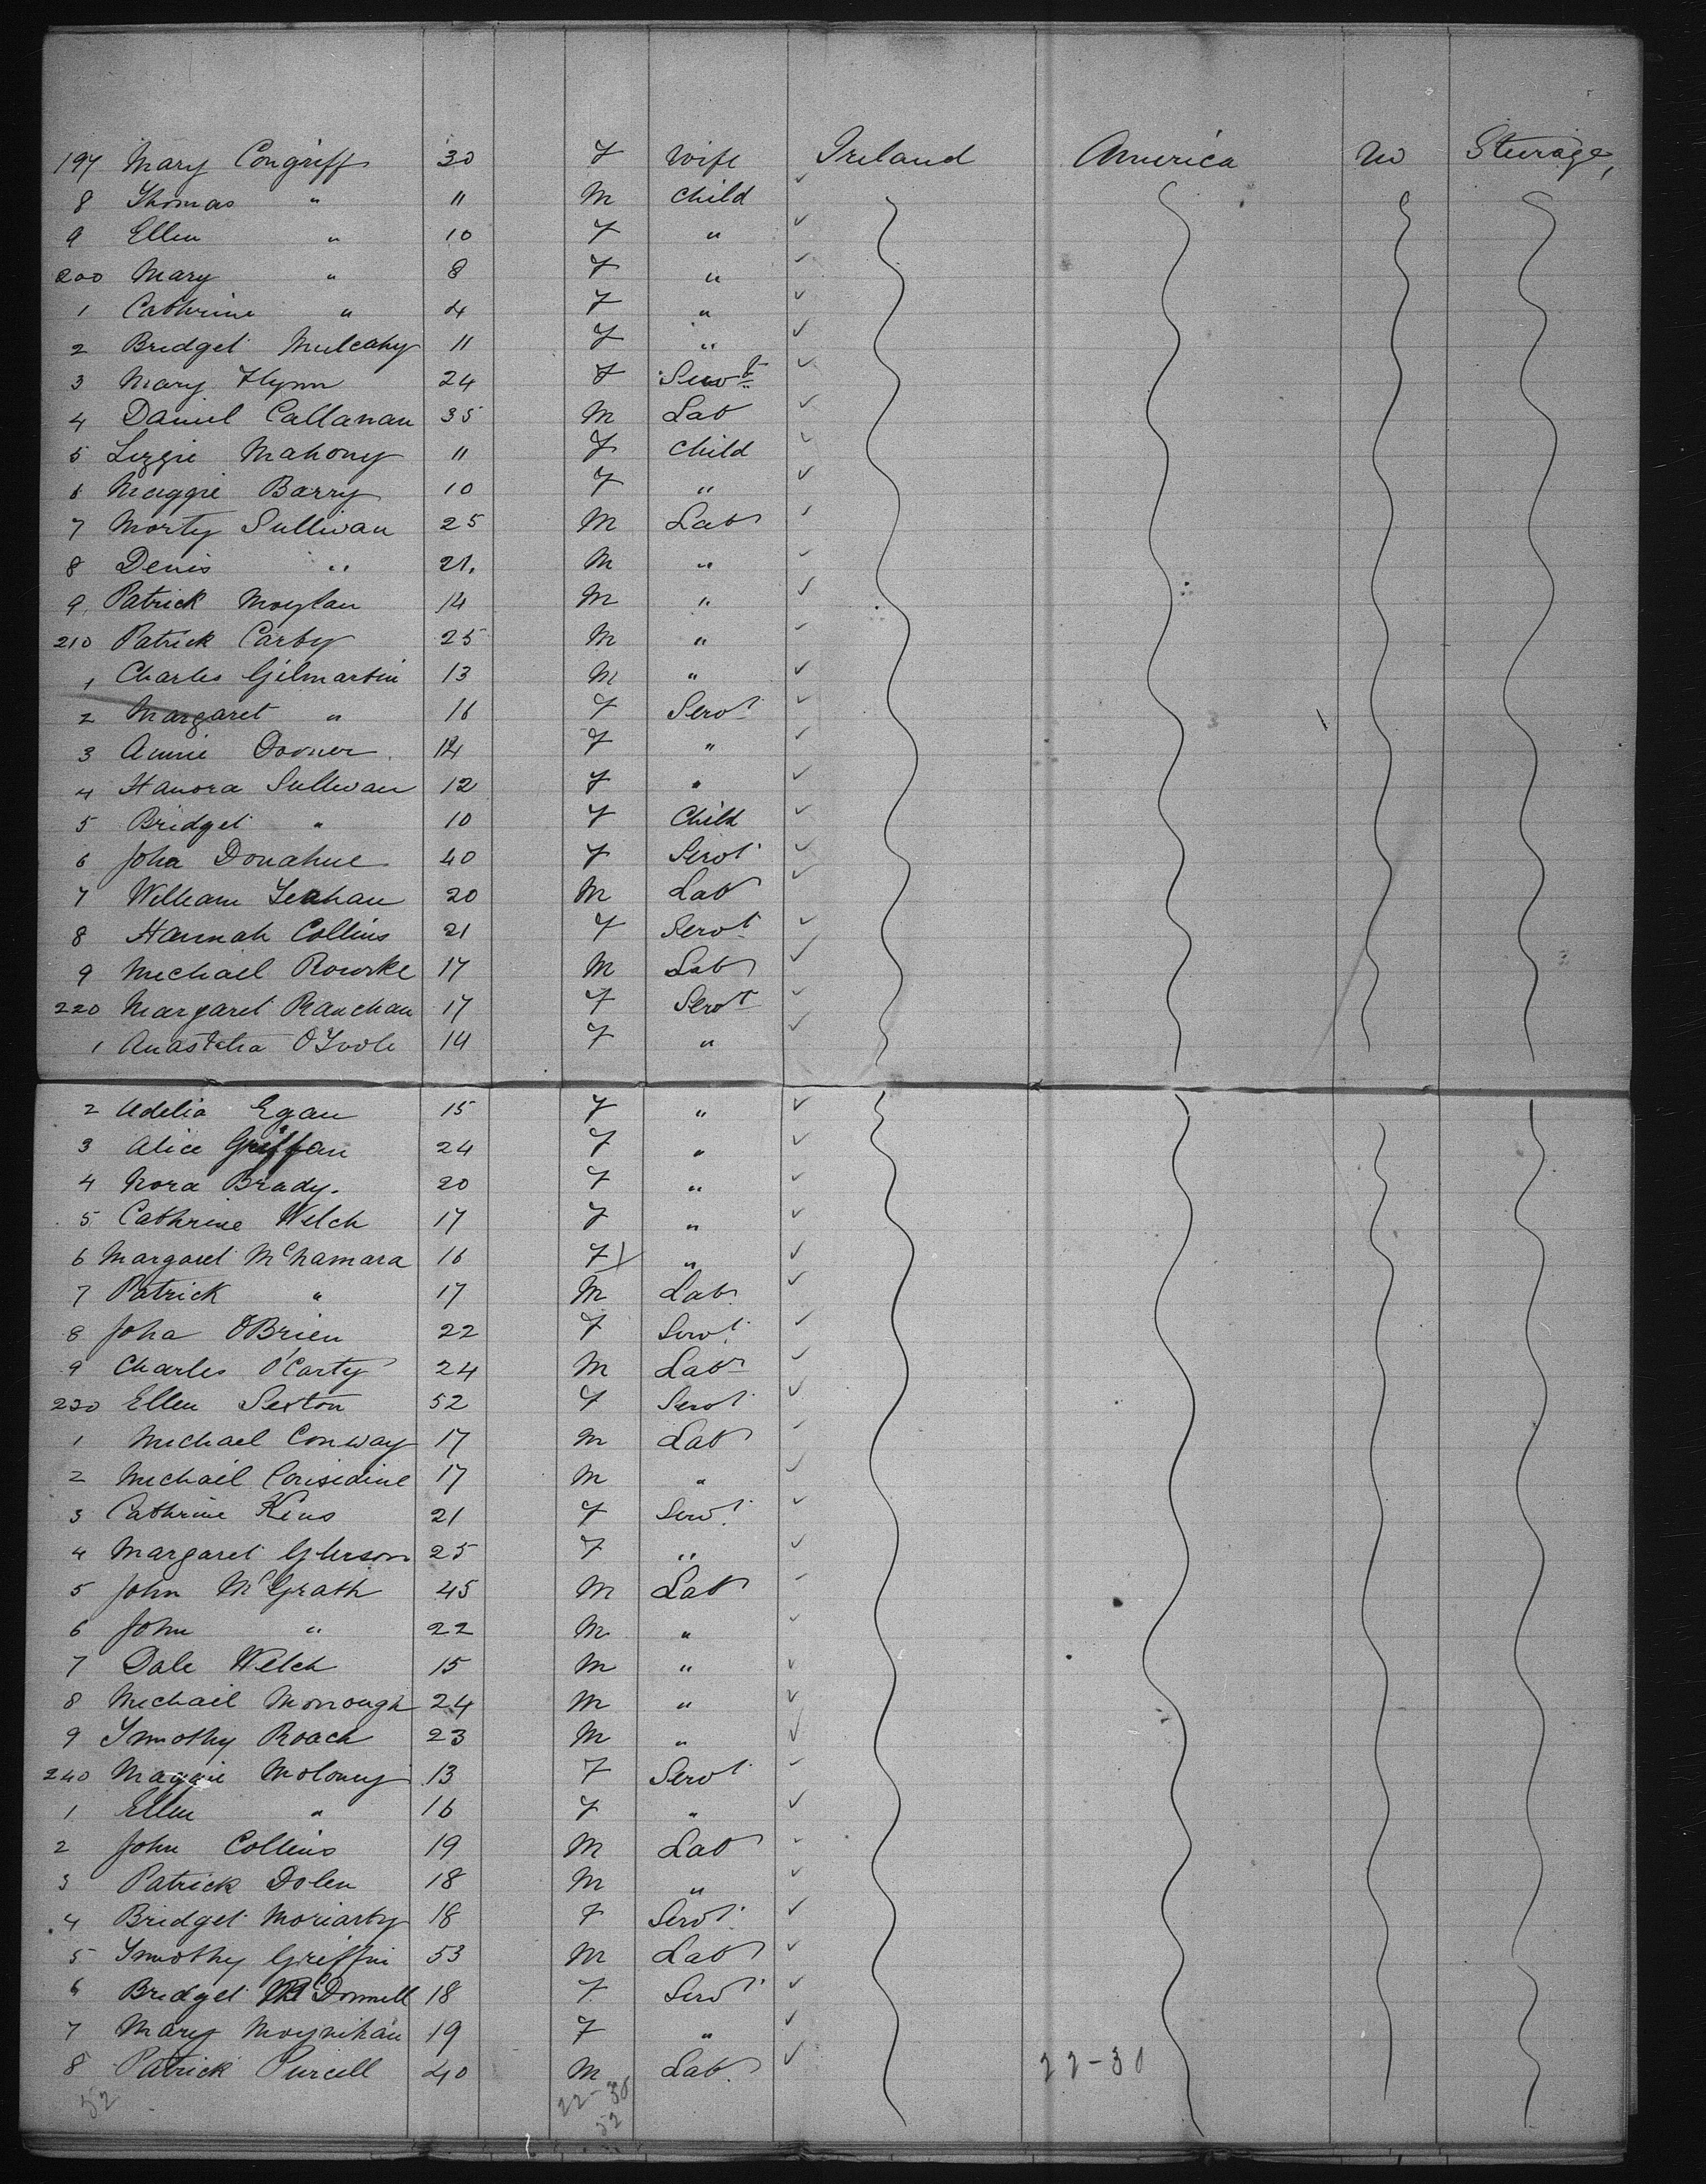 197 Mary Congriff 30 F Wife Ireland America no Steerage,
8 Thomas " 11 M Child
9 Ellen " 10 F "
200 Mary " 8 F "
1 Cathrine " 4 F "
2 Bridget Mulcahy 11 F "
3 Mary Flynn 24 F Servt
4 Daniel Callanan 35 M Lab
5 Lizzie Mahony 11 F Child
6 Maggie Barry 10 F "
7 Morty Sullivan 25 M Lab
8 Denis " 21. M "
9 Patrick Moylan 14 M "
210 Patrick Carby 25 M "
1 Charles Gilmartin 13 M "
2 Margaret " 16 F Servt
3 Annie 14 F "
4 Hanora Sullivan 12 F "
5 Bridget " 10 F Child
6 Joha Donahue 40 F Servt
7 William Lenhan 20 M Lab
8 Hannah Collins 21 F Servt
9 Michael Rourke 17 M Lab
220 Margaret 17 F Servt
1 O'Toole 14 F "
2 Adelia Egan 15 F "
3 Alice Griffan 24 F "
4 Nora Brady. 20 F "
5 Cathrine Welch 17 F "
6 Margaret McNamara 16 F "
7 Patrick " 17 M Lab
8 Joha O'Brien 22 F Servt
9 Charles O'Carty 24 M Lab
230 Ellen Sexton 52 F Servt
1 Michael Conway 17 M Lab
2 Michael Considine 17 M "
3 Cathrine Kins 21 F Servt
4 Margaret Gleeson 25 F "
5 John McGrath 45 M Lab
6 John " 22 M "
7 Dale Welch 15 M "
8 Michail Morrough 24 M "
9 Timothy Roach 23 M "
240 Maggie Moloney 13 F Servt
1 Ellen " 16 F "
2 John Collins 19 M Lab
3 Patrick Dolen 18 M "
4 Bridget Moriarty 18 F Servt
5 Timothy Griffin 53 M Lab
6 Bridget McDonnell 18 F Servt
7 Mary Moynihan 19 F "
8 Patrick Purcell 40 M Lab. 22-30
52 22-30
52